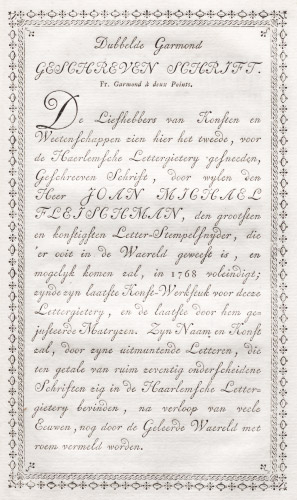 Dubbelde Garmond
GESCHREVEN SCHRIFT.
Fr. Garmond à deux Points.
De Liefhebbers van Konsten en
Weetenschappen zien hier het tweede, voor
de Haerlemsche Lettergietery gesneeden,
Geschreeven Schrift, door wylen den
Heer JOAN MICHAEL
FLEISCHMAN, den grootsten
en konstigsten Letter-Stempelsnyder, die
'er ooit in de Waereld geweest is, en
mogelyk komen zal, in 1768 voleindigt;
zynde zyn laatste Konst-Werkstuk voor deeze
Lettergietery, en de laatste door hem ge-
justeerde Matryzen. Zyn Naam en Konst
zal, door zyne uitmuntende Letteren, die
ten getale van ruim zeventig onderscheidene
Schriften zig in de Haarlemsche Letter-
gietery bevinden, na verloop van veele
Eeuwen, nog door de Geleerde Waereld met
roem vermeld worden.